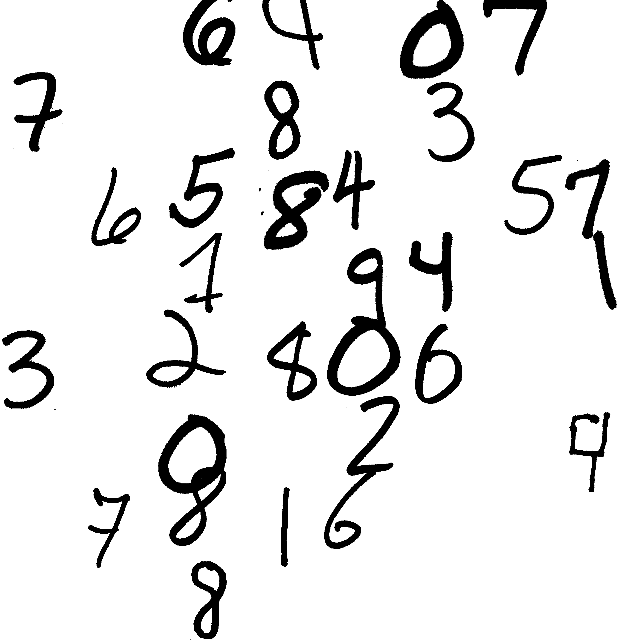 6 9 0 7
7 8 3
6 5 8 4 5 7
1 9 4 1
3 2 8 0 6
0 2 9
7 8 1 6
8